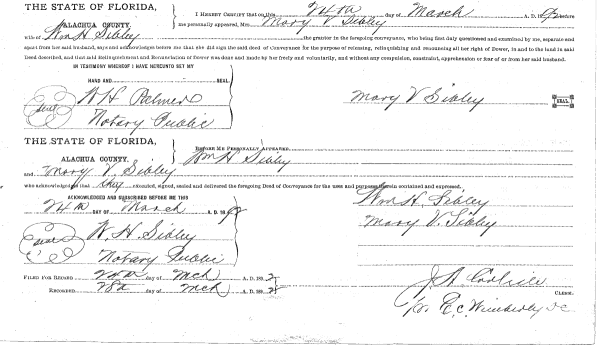 THE STATE OF FLORIDA,
ALACHUA COUNTY.
I HEREBY CERTIFY that on this 24th day of March A. D. 189 before
me personally appeared, Mrs Mary V Sibley
wife of Wm H Sibley the grantor in the foregoing conveyance, who being first duly questioned and examined by me, separate and
apart from her said husband, says and acknowledges before me that she did the said deed of Conveyance for the purpose of releasing, relinquishing and renouncing all her right of Dower, in and to the land in said
Deed described, and that said Relinquishment and Renunciation of Dower was done and made by her freely and voluntarily, and without any compulsion, constraint, apprehension or fear of or from her said husband.
IN TESTIMONY WHEREOF I HAVE HEREUNTO SET MY
HAND AND SEAL.
Seal W H Palmer
Mary V Sibley SEAL.
Notary Public
THE STATE OF FLORIDA,
ALACHUA COUNTY.
BEFORE ME PERSONALLY APPEARED,
Wm H Sibley
and Mary V. Sibley
who acknowledged that they executed, signed, sealed and delivered the foregoing Deed of Conveyance for the uses and purposes therein contained and expressed.
ACKNOWLEDGED AND SUBSCRIBED BEFORE ME THIS
24th DAY OF March A. D. 189
Wm H. Sibley
Mary V. Sibley
Seal W. H. Sibley
Notary Public
FILED FOR RECORD 24th day of Mch A. D. 189
RECORDED 28th day of Mch A. D. 189
J A Carlisle CLERK.
pr E. C. Wimberly D C